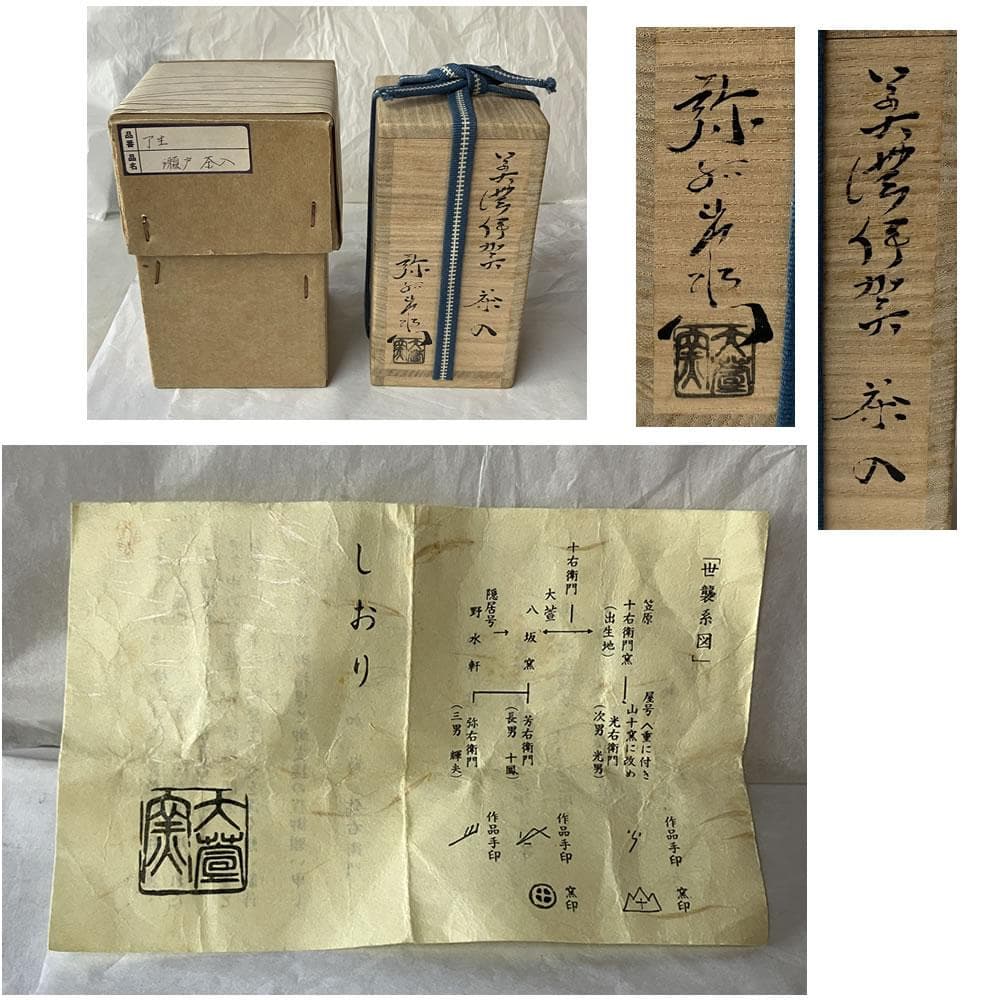 品番 丁土
品名 瀬戸 茶入
美濃伊賀 茶入
弥右衛門
大萱窯
弥右衛門
大萱窯
美濃伊賀 茶入
「世襲系図」
笠原
十右衛門窯
(出生地)
屋号 八重に付き
山十窯に改め
光右衛門
(次男 光男)
十右衛門
大萱
八坂窯
芳右衛門
(長男 十鳳)
隠居号
野水軒
弥右衛門
(三男 輝夫)
作品手印
作品手印
作品手印
窯印
窯印
しおり
大萱窯